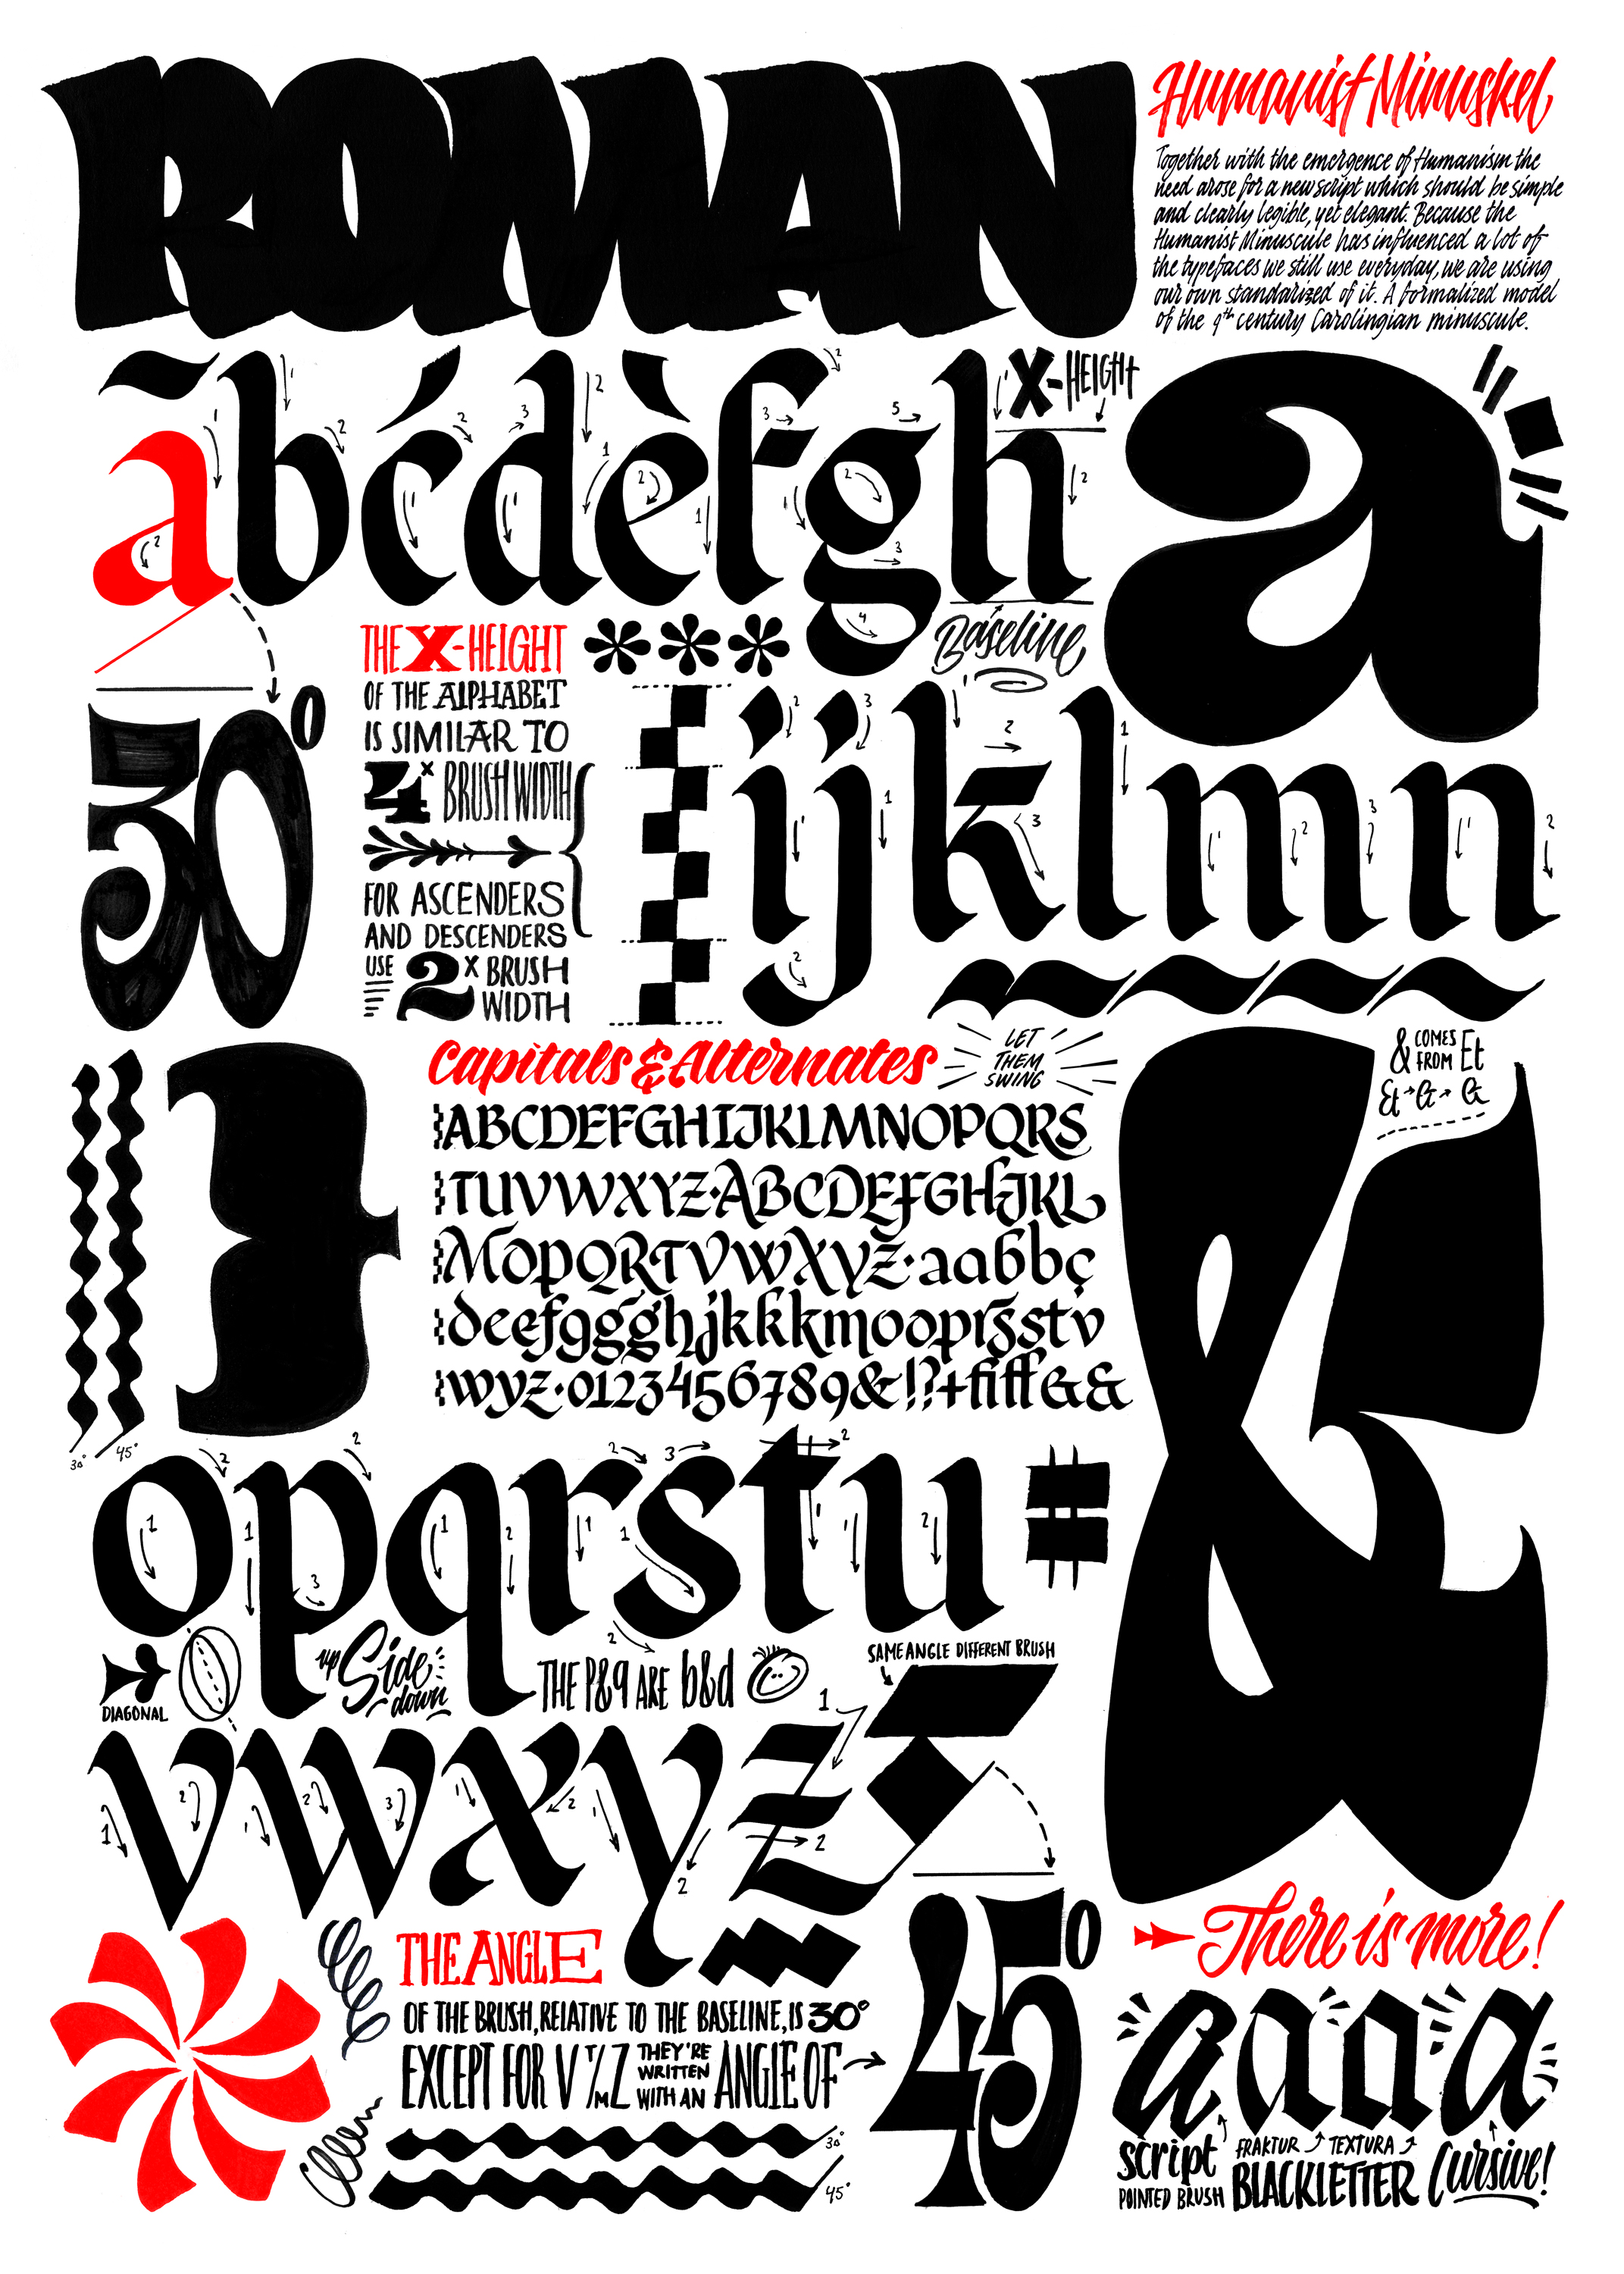 ROMAN
Humanist Minuskel
Together with the emergence of Humanism the
need arose for a new script which should be simple
and clearly legible, yet elegant. Because the
Humanist Minuscule has influenced a lot of
the typefaces we still use everyday, we are using
our own standarized of it. A formalized model
of the 9th century Carolingian minuscule.
ãbćdèfgh
X-HEIGHT
a
Baseline
THE X-HEIGHT
OF THE ALPHABET
IS SIMILAR TO
4x BRUSH WIDTH
FOR ASCENDERS
AND DESCENDERS
USE 2x BRUSH
WIDTH
30°
ijklmn
}
Capitals & Alternates
LET
THEM
SWING
ABCDEFGHIJKLMNOPQRS
TUVWXYZ·ABCDEFGHJKL
MOPQRTVWXYZ·aabbç
deefggghjkkkmooprsßstv
wyz·0123456789&!?+fiff&&
& COMES
FROM Et
Et → & → &
&
30° 45°
opqrstu
#
DIAGONAL
up Side down
THE P&q ARE b&d
SAME ANGLE DIFFERENT BRUSH
vwxyz
THE ANGLE
OF THE BRUSH, RELATIVE TO THE BASELINE, IS 30°
EXCEPT FOR V T/M Z THEY'RE WRITTEN WITH AN ANGLE OF
45°
30°
45°
There is more!
a a a a
script
POINTED BRUSH
FRAKTUR TEXTURA
BLACKLETTER
Cursive!